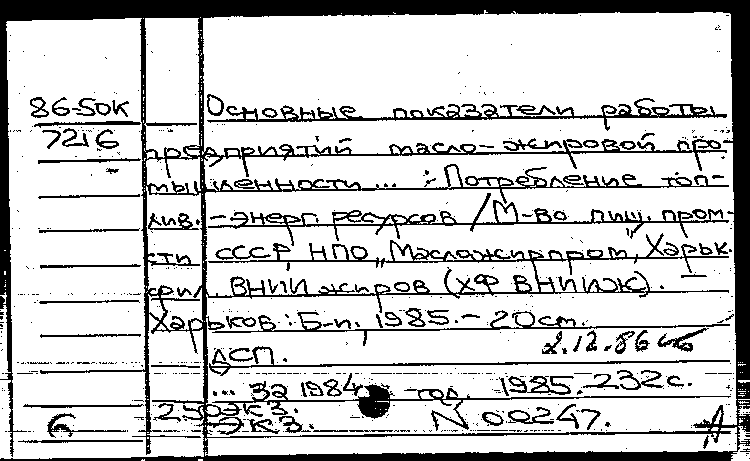 86-50к Основные показатели работы
7216 предприятий масло-жировой про-
мышленности... : Потребление топ-
лив.-энерг. ресурсов / М-во пищ. пром-
сти СССР, НПО „Масложирпром", Харьк.
фил. ВНИИ жиров (ХФ ВНИИЖ). –
Харьков : Б-и, 1985. – 20 см.
ДСП.
2.12.86
... за 1984 год. 1985. 232 с.
250 экз.
экз. N 00247.
6